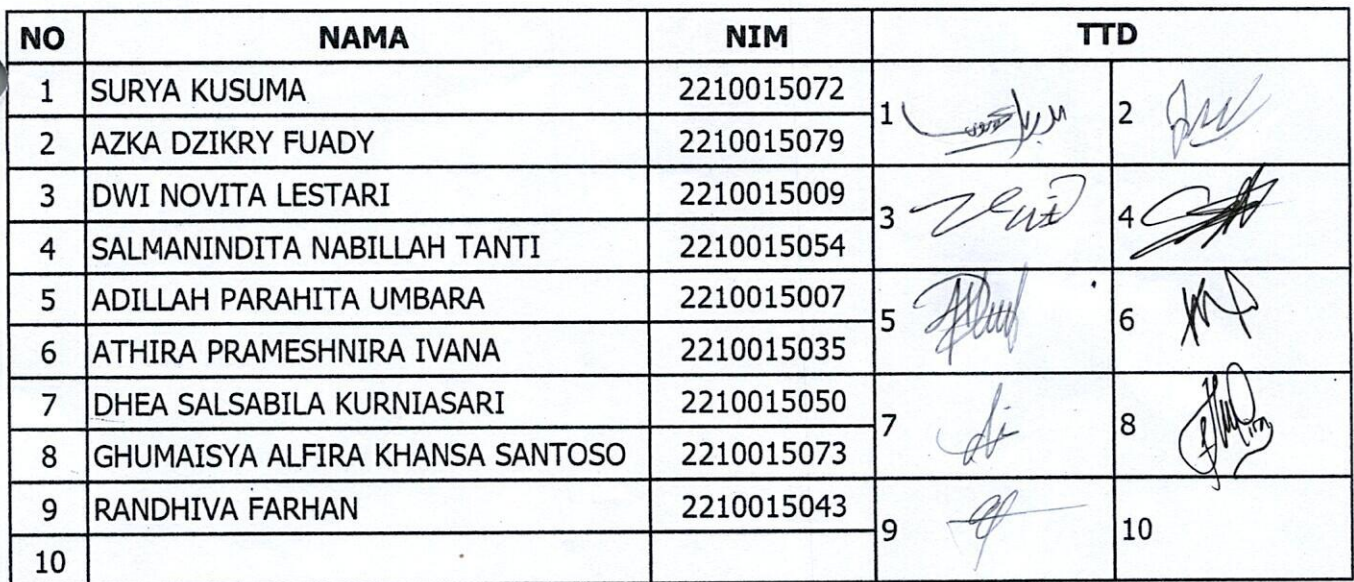 NO NAMA NIM TTD
1 SURYA KUSUMA 2210015072 1 2
2 AZKA DZIKRY FUADY 2210015079
3 DWI NOVITA LESTARI 2210015009 3 4
4 SALMANINDITA NABILLAH TANTI 2210015054
5 ADILLAH PARAHITA UMBARA 2210015007 5 6
6 ATHIRA PRAMESHNIRA IVANA 2210015035
7 DHEA SALSABILA KURNIASARI 2210015050 7 8
8 GHUMAISYA ALFIRA KHANSA SANTOSO 2210015073
9 RANDHIVA FARHAN 2210015043 9 10
10